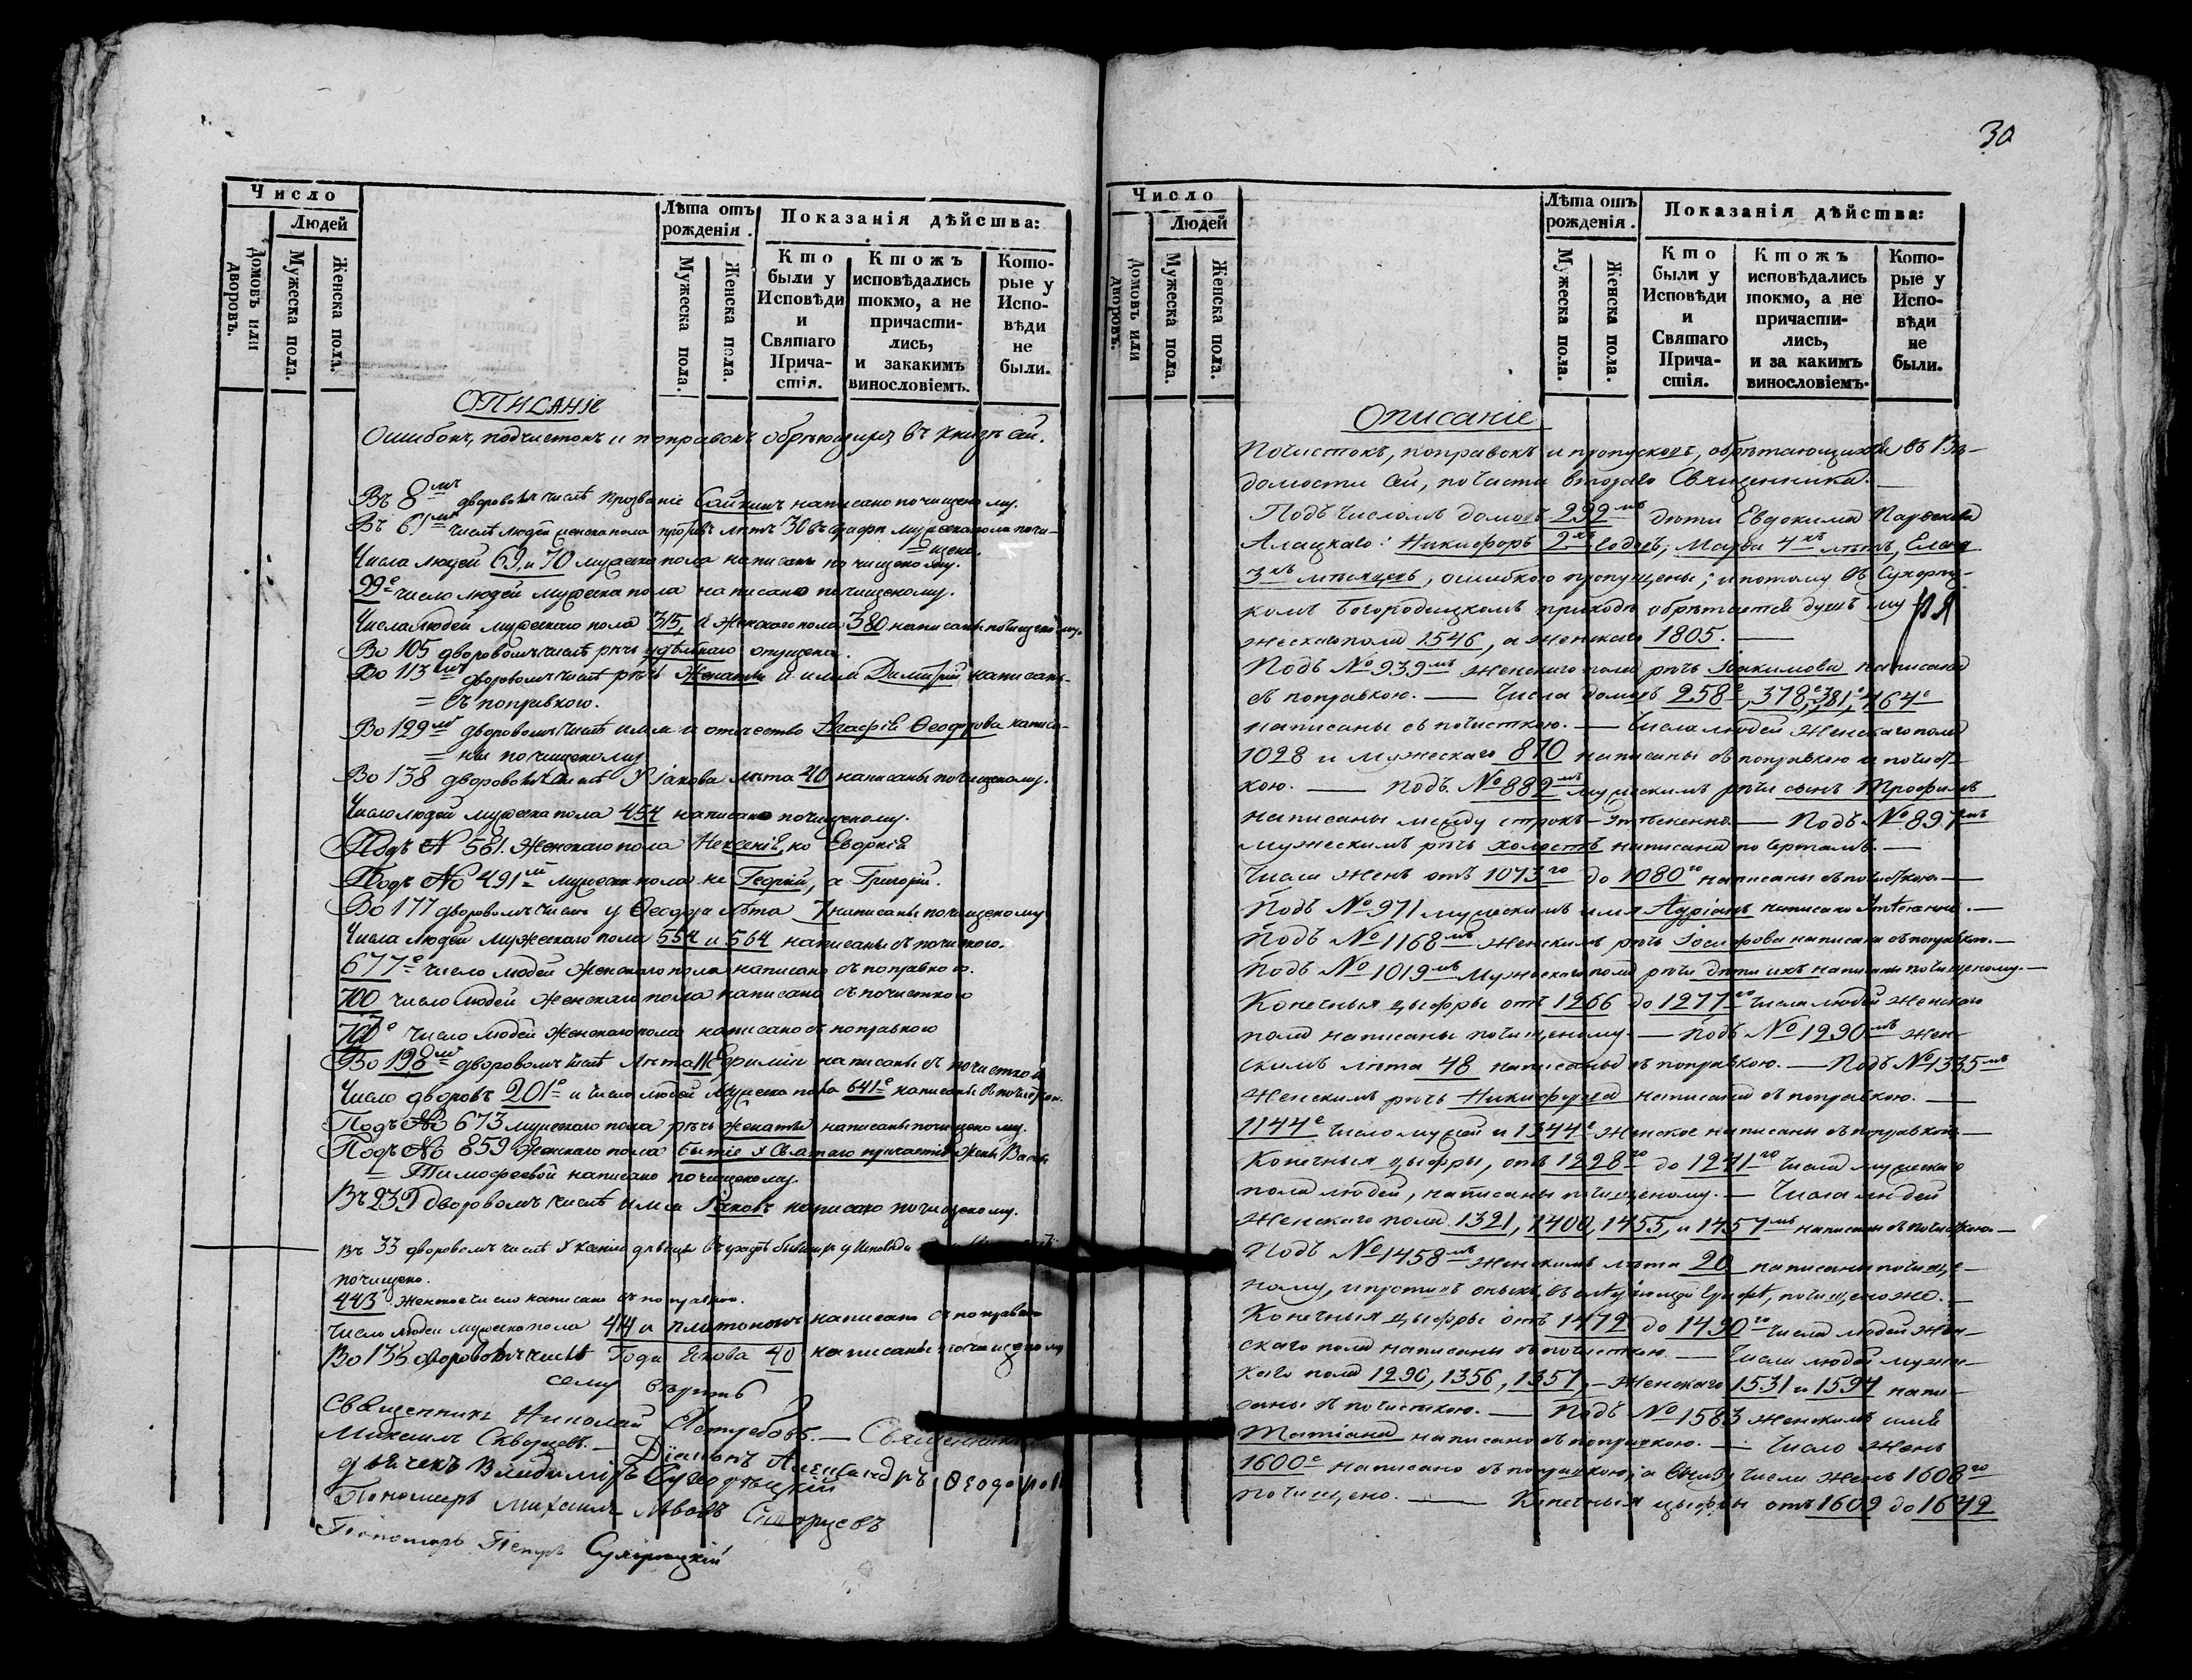 30
Число
Людей
Домовъ или дворовъ.
Мужеска пола.
Женска пола.
Лѣта отъ рожденія.
Мужеска пола.
Женска пола.
Показанія дѣйства:
Кто были у Исповѣди и Святаго Причастія.
Ктожъ исповѣдались токмо, а не причастились, и закакимъ винословіемъ.
Которые у Исповѣди не были.
Описаніе
Ошибокъ, подчистокъ и поправокъ обрѣтющихся въ книгѣ сей.
Въ 8мъ дворовомъ числѣ прозваніе написано по чищеному.
Въ 61мъ числѣ людей женска пола противъ лѣтъ 30 въ графѣ мужеска пола почи-
= щено.
Числа людей 69, и 70 мужеска пола написаны по чищеному.
99е число людей мужеска пола написано по чищеному.
Числа людей мужескаго пола 315, и женскаго пола 380 написаны по чищеному.
Во 105 дворовомъ числѣ рѣчь опущена.
Во 113мъ дворовомъ числѣ рѣчь Женатъ и имя Димитрій написаны
= съ поправкою.
Во 129мъ дворовомъ числѣ имя и отечество Агафіѣ Ѳеодорова написа-
= ны по чищеному
Во 138 дворовомъ числѣ У Іакова лѣта 40 написаны по чищеному.
Число людей мужеска пола 454 написано по чищеному.
Подъ № 581. Женскаго пола не Ксеніѣ, но Евдокіѣ
Подъ № 491мъ мужеска пола не Георгій, а Григорій.
Во 177 дворовомъ числѣ у Ѳеодора лѣта 7 написаны по чищеному
Числа людей мужескаго пола 554 и 564 написаны съ почисткою.
677е число людей женскаго пола написано съ поправкою.
700 число людей женскаго пола написано съ почисткою
702е число людей женскаго пола написано съ поправкою
Во 198мъ дворовомъ числѣ лѣта Ефиміи написаны съ почисткою
Число дворовъ 201е и число людей мужеска пола 641е написаны съ почисткою.
Подъ № 673 мужескаго пола рѣчь женатъ написаны по чищеному.
Подъ № 859 Женскаго пола бытіе у Святаго причастія жены
= Тимофеевой написано по чищеному.
Въ 239 дворовомъ числѣ имя Іаковъ написано по чищеному.
Въ 33 дворовомъ числѣ у Ксеніи дѣвицы въ графѣ бывшихъ у Исповѣди
почищено.
443 Женское число написано съ поправкою.
Число людей мужеска пола 414 и Платономъ написано съ поправкою
Во 138 дворовомъ числѣ Года Якова 40 написаны по чищеному
сему вѣрить
Священникъ Николай Ястребовъ. — Священникъ
Михаилъ Скворцевъ. — Діаконъ Александръ Ѳеодоровъ
дьячекъ Владиміръ Сухорѣцкій
Пономарь Михаилъ Львовъ Скворцевъ
Пономарь Петръ Сухорѣцкій
Число
Людей
Домовъ или дворовъ.
Мужеска пола.
Женска пола.
Лѣта отъ рожденія.
Мужеска пола.
Женска пола.
Показанія дѣйства:
Кто были у Исповѣди и Святаго Причастія.
Ктожъ исповѣдались токмо, а не причастились, и за какимъ винословіемъ.
Которые у Исповѣди не были.
Описаніе
Почистокъ, поправокъ и пропусковъ, обрѣтающихся въ Вѣ-
домости сей, по части втораго Священника. —
Подъ числомъ домовъ 299мъ дѣти Евдокима Парѳенова
Алацкаго: Никифоръ 2хъ годовъ, Марѳа 4хъ лѣтъ, Елена
3хъ мѣсяцевъ, ошибкою пропущены; и потому въ Сухорѣц-
комъ Богородицкомъ приходѣ обрѣтается душъ му-
жескаго пола 1546, а женскаго 1805. —
Подъ №939мъ Женскаго пола рѣчь Іоакимова написана
съ поправкою. — Числа домовъ 258е, 378е, 381е, 464е
написаны съ почисткою. — Числа людей Женскаго пола
1028 и мужескаго 810 написаны съ поправкою и почист-
кою. — Подъ №882мъ мужескимъ рѣчи сынъ Трофимъ
написаны между строкъ — Подъ №897мъ
мужескимъ рѣчь холостъ написана по чертамъ. —
Числа женъ отъ 1073го до 1080го написаны съ почисткою —
Подъ №971 мужескимъ имя Адріанъ написано —
Подъ №1168мъ Женскимъ рѣчь Іосифова написана съ поправкою. —
Подъ №1019мъ Мужескаго пола рѣчи дѣти ихъ написаны по чищеному. —
Конечныя цыфры отъ 1266 до 1277го числа людей Женскаго
пола написаны по чищеному. — Подъ №1290мъ Жен-
скимъ лѣта 48 написаны съ поправкою. — Подъ №1335мъ
Женскимъ рѣчь Никифорова написана съ поправкою. —
1144е Число мужей и 1344е Женское написаны съ поправкою —
Конечныя цыфры, отъ 1228го до 1241го числа мужескаго
пола людей, написаны по чищеному. — Числа людей
Женскаго пола 1321, 1400, 1455, и 1457мъ написаны съ почисткою. —
Подъ №1458мъ Женскимъ лѣта 20 написаны по чище-
ному, и противъ оныхъ, въ графѣ, почищено же. —
Конечныя цыфры отъ 1472 до 1490го числа людей Жен-
скаго пола написаны съ почисткою. — Числа людей муже-
скаго пола 1290, 1356, 1357, — Женскаго 1531 и 1594 напи-
саны съ почисткою. — Подъ №1583 женскимъ имя
Татіана написано съ поправкою. — Число Женъ
1600е написано съ поправкою, а внизу числа женъ 1608го
почищено. — Конечныя цыфры отъ 1609 до 1642